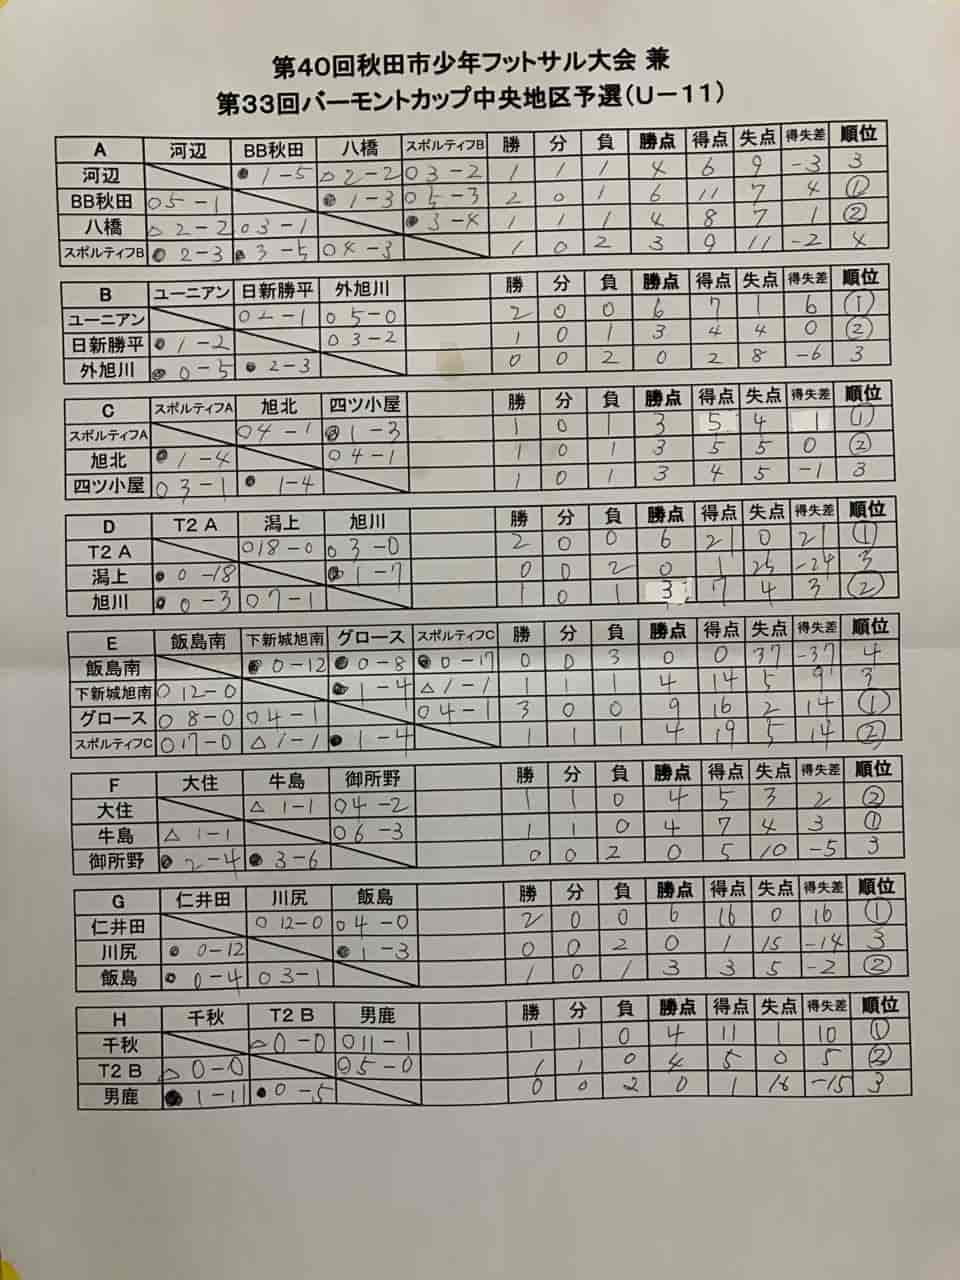 第40回秋田市少年フットサル大会 兼
第33回バーモントカップ中央地区予選(U-11)
A 河辺 BB秋田 八橋 スポルティフB 勝 分 負 勝点 得点 失点 得失差 順位
河辺 ●1-5 △2-2 ○3-2 1 1 1 4 6 9 -3 3
BB秋田 ○5-1 ●1-3 ○5-3 2 0 1 6 11 7 4 ①
八橋 △2-2 ○3-1 ●3-4 1 1 1 4 8 7 1 ②
スポルティフB ●2-3 ●3-5 ○4-3 1 0 2 3 9 11 -2 4
B ユーニアン 日新勝平 外旭川 勝 分 負 勝点 得点 失点 得失差 順位
ユーニアン ○2-1 ○5-0 2 0 0 6 7 1 6 ①
日新勝平 ●1-2 ○3-2 1 0 1 3 4 4 0 ②
外旭川 ●0-5 ●2-3 0 0 2 0 2 8 -6 3
C スポルティフA 旭北 四ツ小屋 勝 分 負 勝点 得点 失点 得失差 順位
スポルティフA ○4-1 ●1-3 1 0 1 3 5 4 1 ①
旭北 ●1-4 ○4-1 1 0 1 3 5 5 0 ②
四ツ小屋 ○3-1 ●1-4 1 0 1 3 4 5 -1 3
D T2 A 潟上 旭川 勝 分 負 勝点 得点 失点 得失差 順位
T2 A ○18-0 ○3-0 2 0 0 6 21 0 21 ①
潟上 ●0-18 ●1-7 0 0 2 0 1 25 -24 3
旭川 ●0-3 ○7-1 1 0 1 3 7 4 3 ②
E 飯島南 下新城旭南 グロース スポルティフC 勝 分 負 勝点 得点 失点 得失差 順位
飯島南 ●0-12 ●0-8 ●0-17 0 0 3 0 0 37 -37 4
下新城旭南 ○12-0 ●1-4 △1-1 1 1 1 4 14 5 9 3
グロース ○8-0 ○4-1 ○4-1 3 0 0 9 16 2 14 ①
スポルティフC ○17-0 △1-1 ●1-4 1 1 1 4 19 5 14 ②
F 大住 牛島 御所野 勝 分 負 勝点 得点 失点 得失差 順位
大住 △1-1 ○4-2 1 1 0 4 5 3 2 ②
牛島 △1-1 ○6-3 1 1 0 4 7 4 3 ①
御所野 ●2-4 ●3-6 0 0 2 0 5 10 -5 3
G 仁井田 川尻 飯島 勝 分 負 勝点 得点 失点 得失差 順位
仁井田 ○12-0 ○4-0 2 0 0 6 16 0 16 ①
川尻 ●0-12 ●1-3 0 0 2 0 1 15 -14 3
飯島 ●0-4 ○3-1 1 0 1 3 3 5 -2 ②
H 千秋 T2 B 男鹿 勝 分 負 勝点 得点 失点 得失差 順位
千秋 △0-0 ○11-1 1 1 0 4 11 1 10 ①
T2 B △0-0 ○5-0 1 1 0 4 5 0 5 ②
男鹿 ●1-11 ●0-5 0 0 2 0 1 16 -15 3